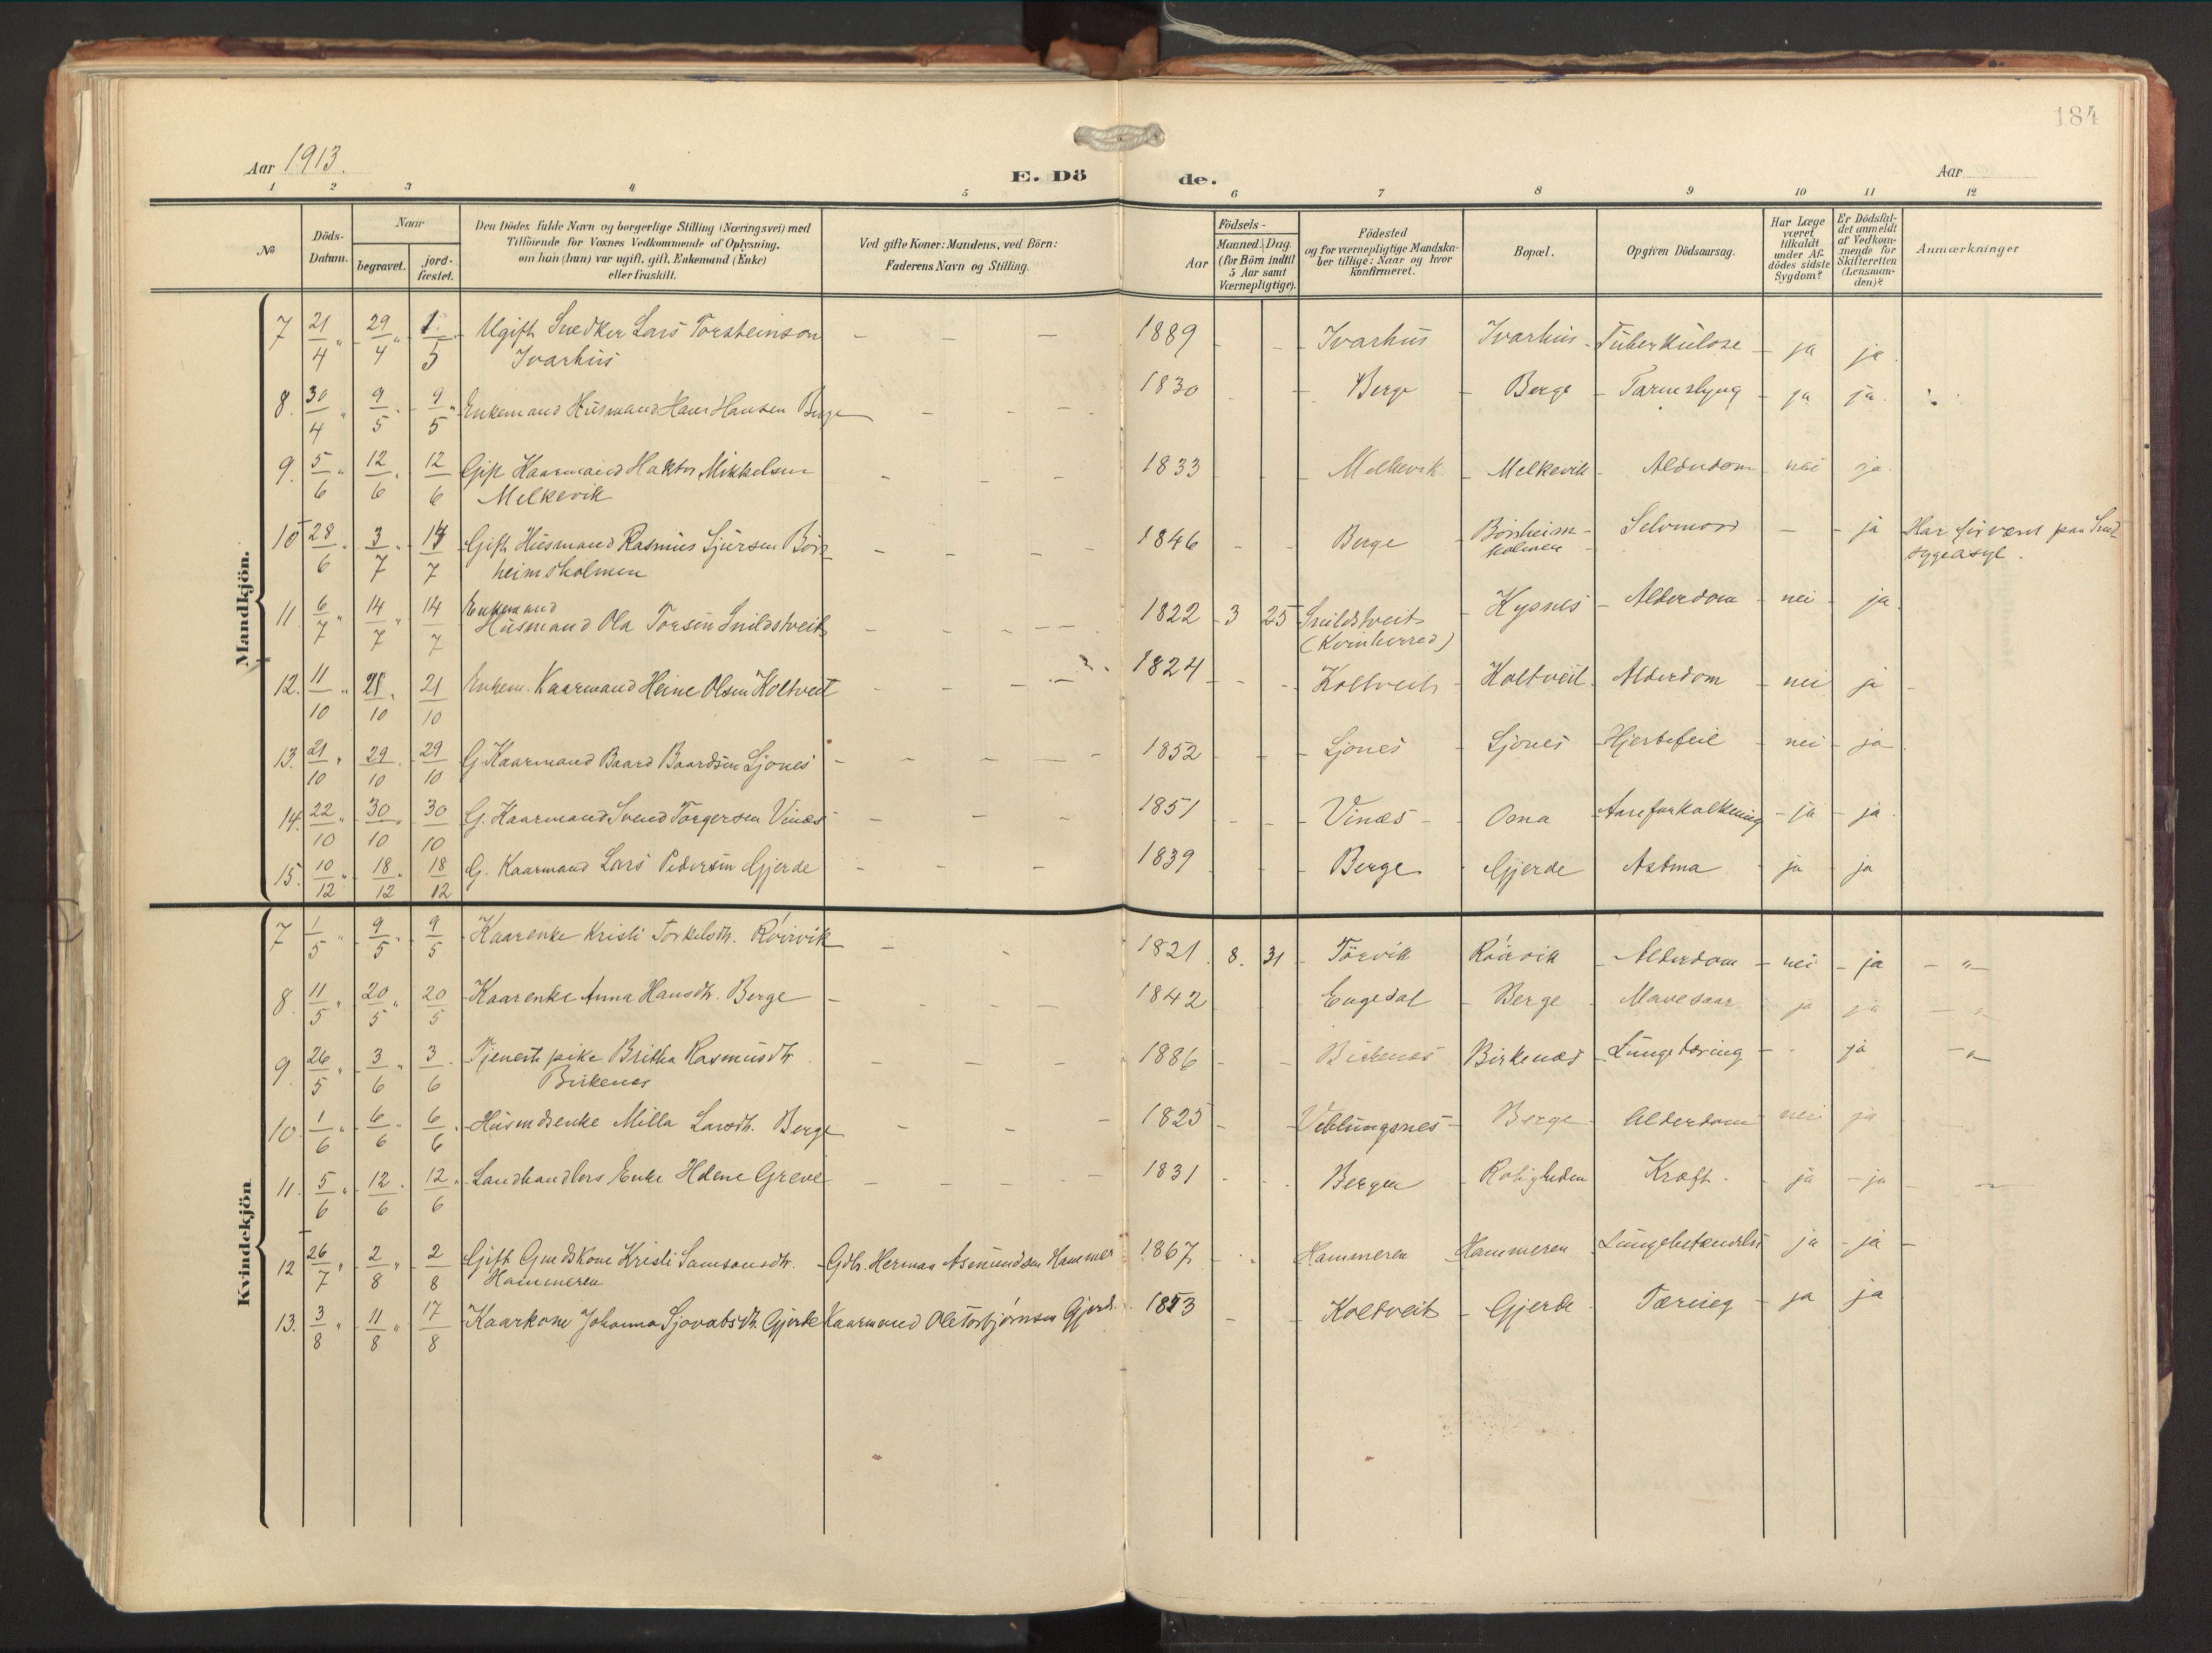 184
Aar 1913.
E. Dö de.
Aar
1 2 3 4 5 6 7 8 9 10 11 12
№
Döds-Datum.
Naar
begravet.
jord-fæstet.
Den Dödes fulde Navn og borgerlige Stilling (Næringsvei) med
Tilföiende for Voxnes Vedkommende af Oplysning,
om han (hun) var ugift, gift, Enkemand (Enke)
eller fraskilt.
Ved gifte Koner: Mandens, ved Börn:
Faderens Navn og Stilling.
Födsels-
Aar
Maaned. Dag.
(for Börn indtil
5 Aar samt
Værnepligtige).
Födested
og for værnepligtige Mandska-
ber tillige: Naar og hvor
Konfirmeret.
Bopæl.
Opgiven Dödsaarsag.
Har Læge
været
tilkaldt
under Af-
dödes sidste
Sygdom?
Er Dödsfal-
det anmeldt
af Vedkom-
mende for
Skifteretten
(Lensman-
den)?
Anmærkninger
Mandkjön.
7 21/4 " 29/4 " 1/5 Ugift Snedker Lars Torsteinson - - - 1889 - - Ivarhus Ivarhus - Tuberkulose - ja ja.
Ivarhus
8. 30/4 " 9/5 " 9/5 " Enkemand Husmand Hans Hansen Berge - - - 1830 - - Berge - Berge - Tarmslyng - ja ja.
9. 5/6 " 12/6 " 12/6 Gift Kaarmand Haktor Mikkelsen - - - 1833 - - Melkevik - Melkevik - Alderdom - nei ja.
Melkevik
10 28/6 " 3/7 " 14/7 Gift Husmand Rasmus Sjursen Börs- - - - 1846 - - Berge - Börsheim- Selvmord - - ja Har för været paa Sind
heimsholmen holmen sygeasyl.
11. 6/7 " 14/7 " 14/7 Enkemand
Husmand Ola Torsen Snildstveit - - - 1822 - 3 25 Snildstveit - Kysnes - Alderdom - nei - ja
(Kvinherred)
12. 11/10 " 21/10 " 21/10 Enkem. Kaarmand Heine Olsen Koltveit - - - 1824 - - Koltveit - Koltveit - Alderdom - nei ja -
13. 21/10 " 29/10 29/10 G. Kaarmand Baard Baardsen Ljones - - - 1852 - - Ljones - Ljones - Hjertefeil - nei - ja.
14. 22/10 " 30/10 " 30/10 G. Kaarmand Svend Torgersen Vinæs - - - 1851 - - Vinæs - Oma - Aareforkalkning - ja - ja.
15. 10/12 " 18/12 " 18/12 G. Kaarmand Lars Pedersen Gjerde - - - 1839 - - Berge - Gjerde - Astma - ja - ja
Kvindekjön
7 1/5 " 9/5 " 9/5 Kaarenke Kristi Torkelsdtr. Röirvik - - 1821. 8. 31 - Törvik Röirvik - Alderdom - nei - ja - " -
8. 11/5 " 20/5 " 20/5 Kaarenke Anna Hansdtr. Berge - - - 1842 - Engedal - Berge - Mavesaar - ja ja - " -
9. 26/5 " 3/6 " 3/6 Tjenestpike Britha Rasmusdtr - - - 1886 - - Birkenæs Birkenæs - Lungetæring - - ja - " -
Birkenes
10. 1/6 " 6/6 " 6/6 . Husmdsenke Milla Larsdtr. Berge - - - 1825 - Veblungsnes - Berge - Alderdom nei ja
11. 5/6 " 12/6 " 12/6 " Landhandlers Enke Helene Greve - - - 1831 - - Bergen - Roligheden Kræft. - ja - ja
12 26/7 " 2/8 " 2/8 Gift Gmdskone Kristi Samsonsdtr. - Gdb. Herman Asmundsen Hammer 1867 - - Hammeren Hammeren Lungebetændelse ja - ja -
Hammeren
13. 3/8 " 11/8 " 17/8 Kaarkone Johanna Sjovatsdtr. Gjerde Kaarmand Ole Torbjörnsen Gjerde. 1853 - - Koltveit - Gjerde - Tæring - ja ja